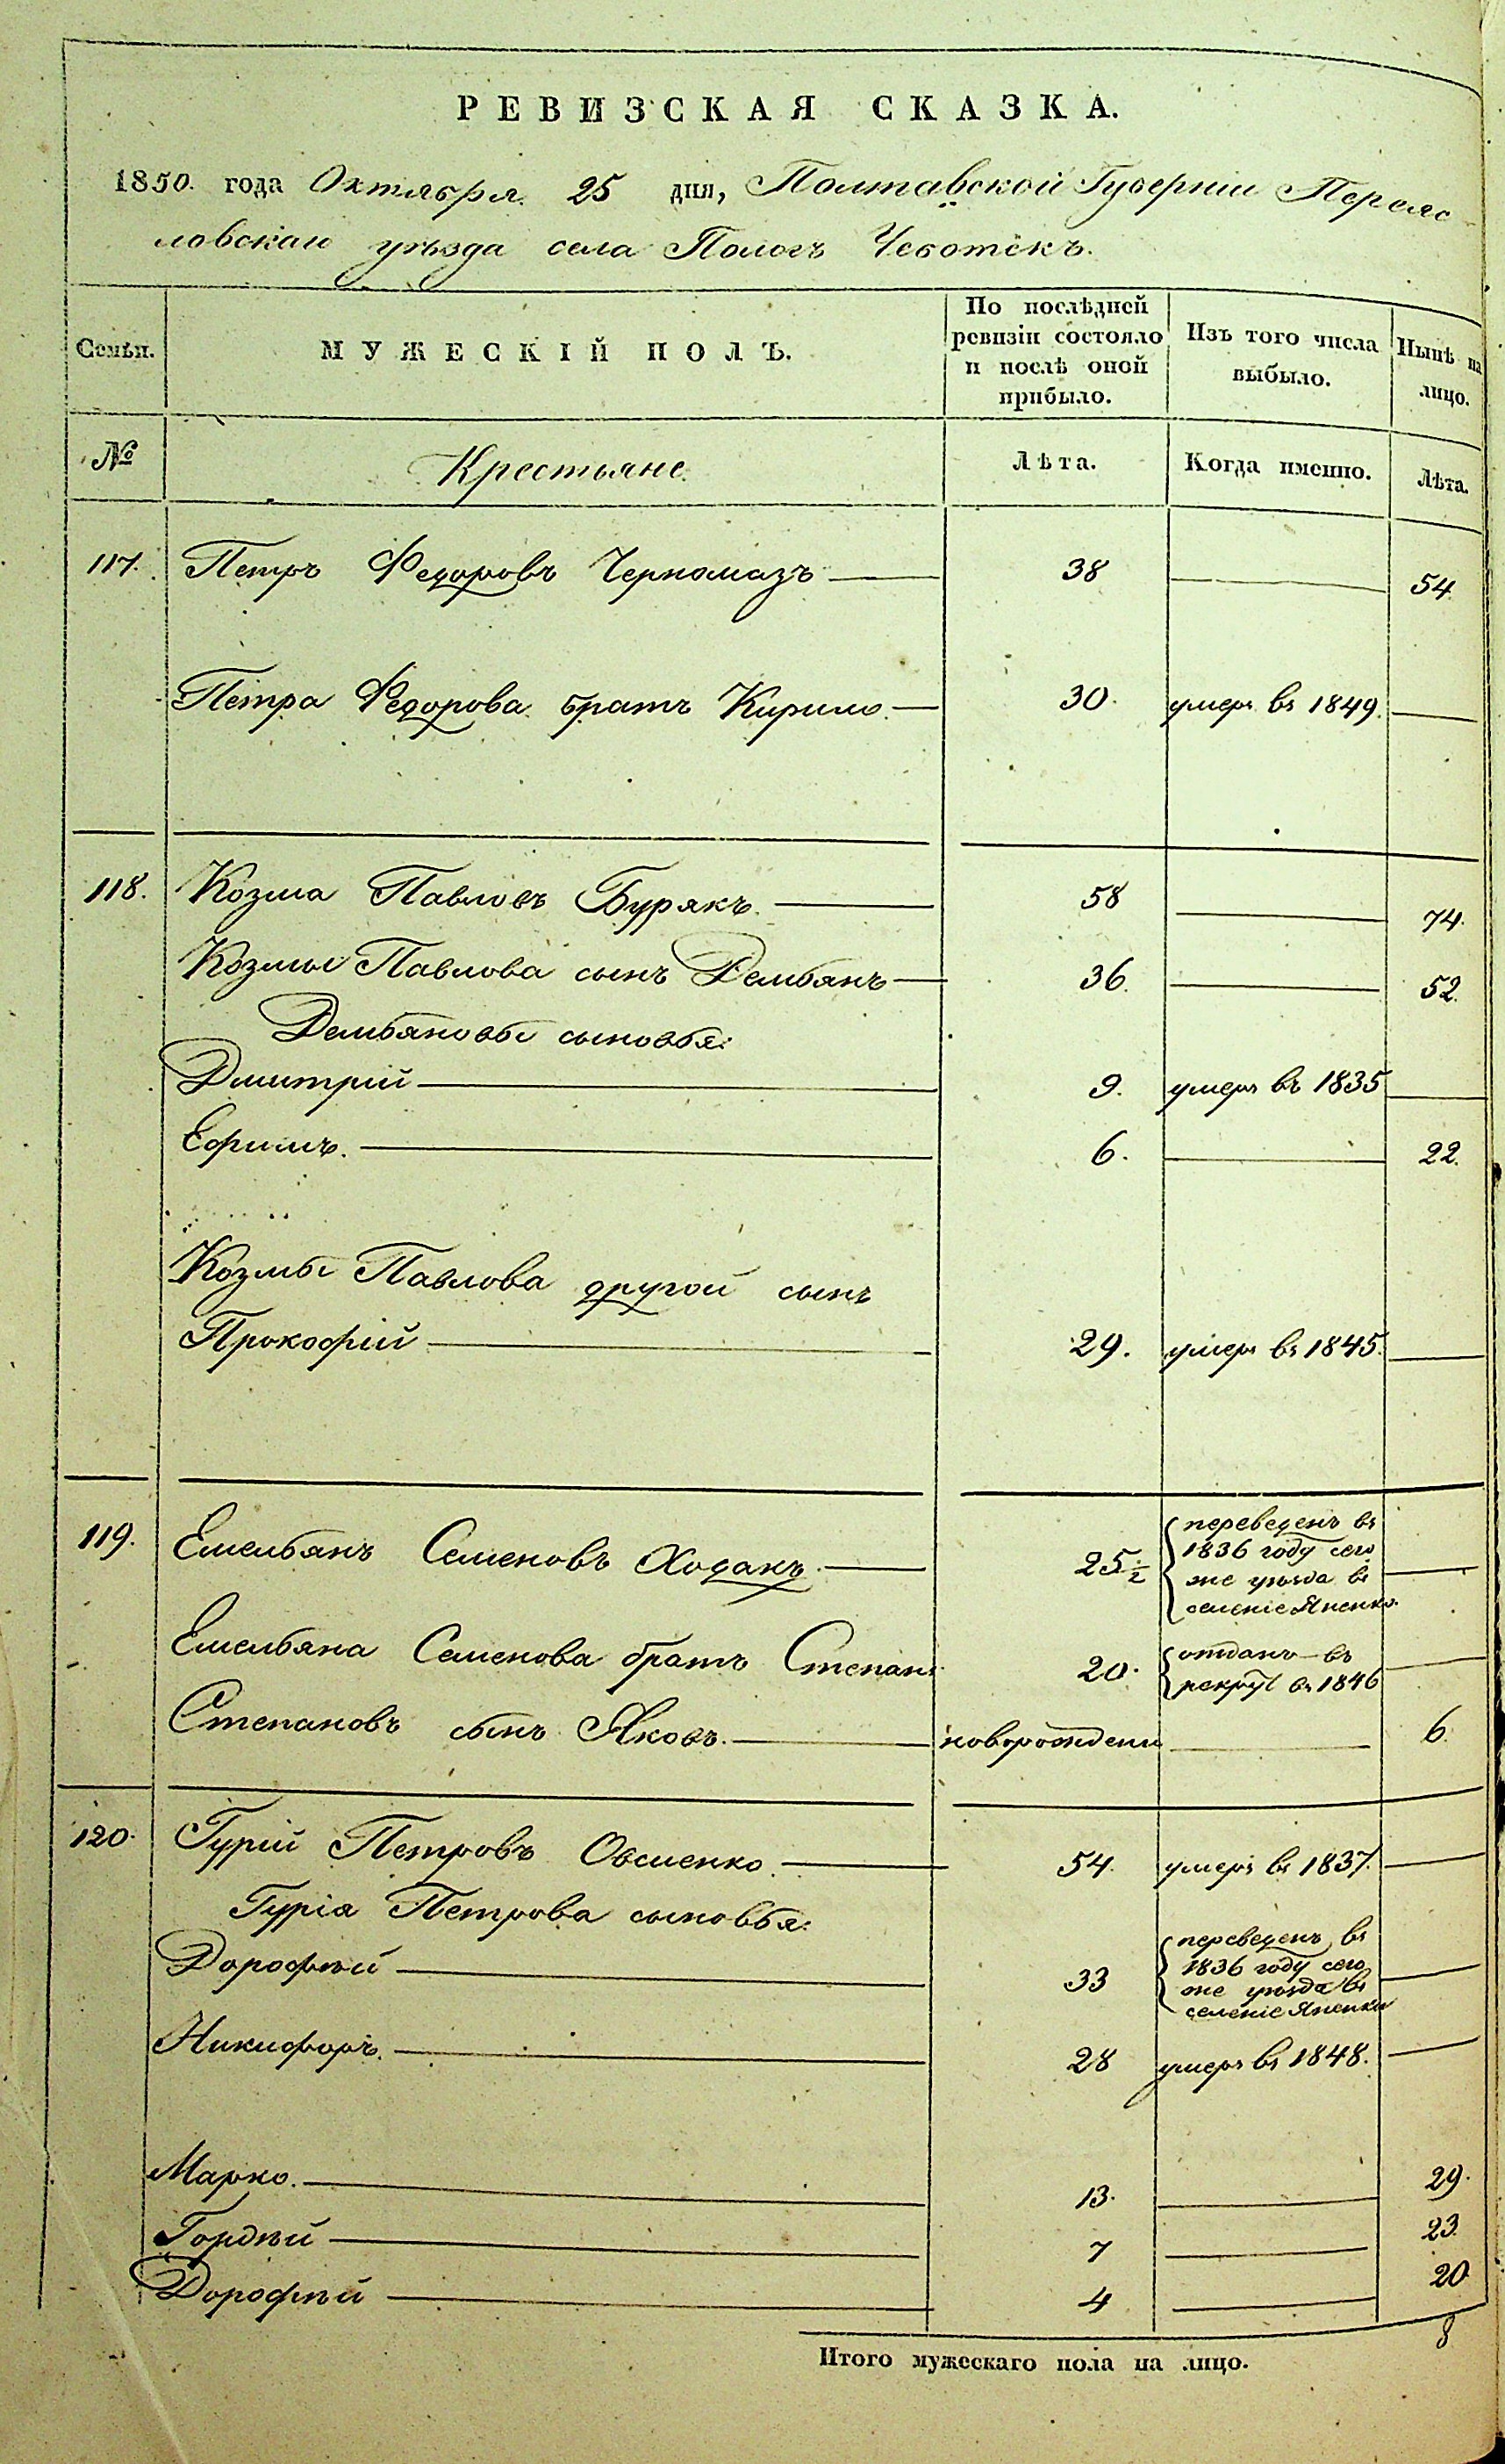 РЕВИЗСКАЯ СКАЗКА.
1850. года Октября 25 дня, Полтавской Губерніи Переяс
ловскаи уѣзда села Пологъ Чеботекъ.
Семьи.
МУЖЕСКІЙ ПОЛЪ.
По послѣдней ревизіи состояло и послѣ оной прибыло.
Изъ того числа выбыло.
Нынѣ на лицо.
№ Крестьяне. Лѣта. Когда именно. Лѣта.
117. Петръ Федоровъ Черномазъ 38 54
Петра Федорова братъ Кирило 30. умеръ въ 1849.
118. Козма Павловъ Бурякъ. 58 74.
Козмы Павлова сынъ Демьянъ 36. 52.
Демьяновы сыновья:
Дмитрій 9. умеръ въ 1835
Ефимъ. 6. 22.
Козмы Павлова другой сынъ
Прокофій 29. умеръ въ 1845.
119. Емельянъ Семеновъ Ходакъ. 25½ переведенъ въ
1836 году сего
же уѣзда въ
селеніе Яненки.
Емельяна Семенова братъ Степанъ 20. отданъ въ
рекрут въ 1846
Степановъ сынъ Яковъ. новорожденъ 6.
120. Гурій Петровъ Овсіенко 54. умеръ въ 1837.
Гурія Петрова сыновья:
Дорофѣй 33 переведенъ въ
1836 году сего
же уѣзда въ
селеніе Яненки
Никифоръ. 28 умеръ въ 1848.
Марко. 13. 29.
Гордѣй 7 23.
Дорофѣй 4 20
Итого мужескаго пола на лицо. 8